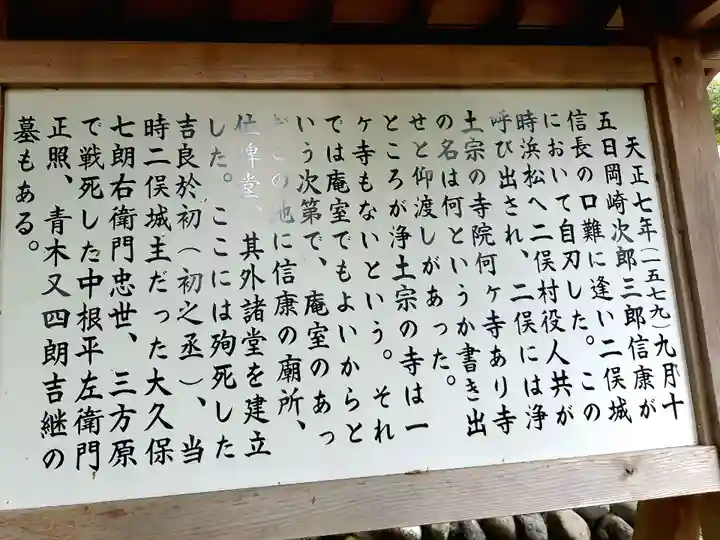 天正七年(一五七九)九月十
五日岡崎次郎三郎信康が
信長の口難に逢い二俣城
において自刃した。この
時浜松へ二俣村役人共が
呼び出され、二俣には浄
土宗の寺院何ヶ寺あり寺
の名は何というか書き出
せと仰渡しがあった。
ところが浄土宗の寺は一
ヶ寺もないという。それ
では庵室でもよいからと
いう次第で、庵室のあっ
たこの地に信康の廟所、
位牌堂、其外諸堂を建立
した。ここには殉死した
吉良於初(初之丞)、当
時二俣城主だった大久保
七朗右衛門忠世、三方原
で戦死した中根平左衛門
正照、青木又四朗吉継の
墓もある。